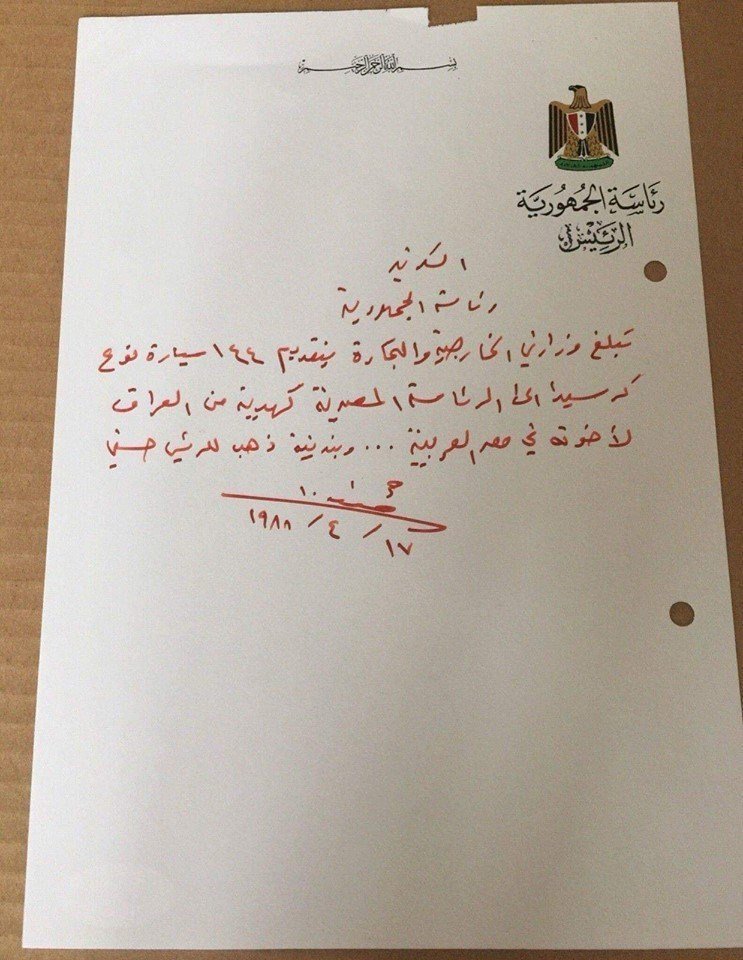 بسم الله الرحمن الرحيم
رئاسة الجمهورية
الرئيس
السكرتير
رئاسة الجمهورية
تبلغ وزارتي الخارجية والتجارة بتقديم ١٤٤ سيارة نوع
كرسيدا الى الرئاسة المصرية كهدية من العراق
لأخوته في مصر العربية ... وبندقية ذهب للرئيس حسني
١٧ / ٤ / ١٩٨٨